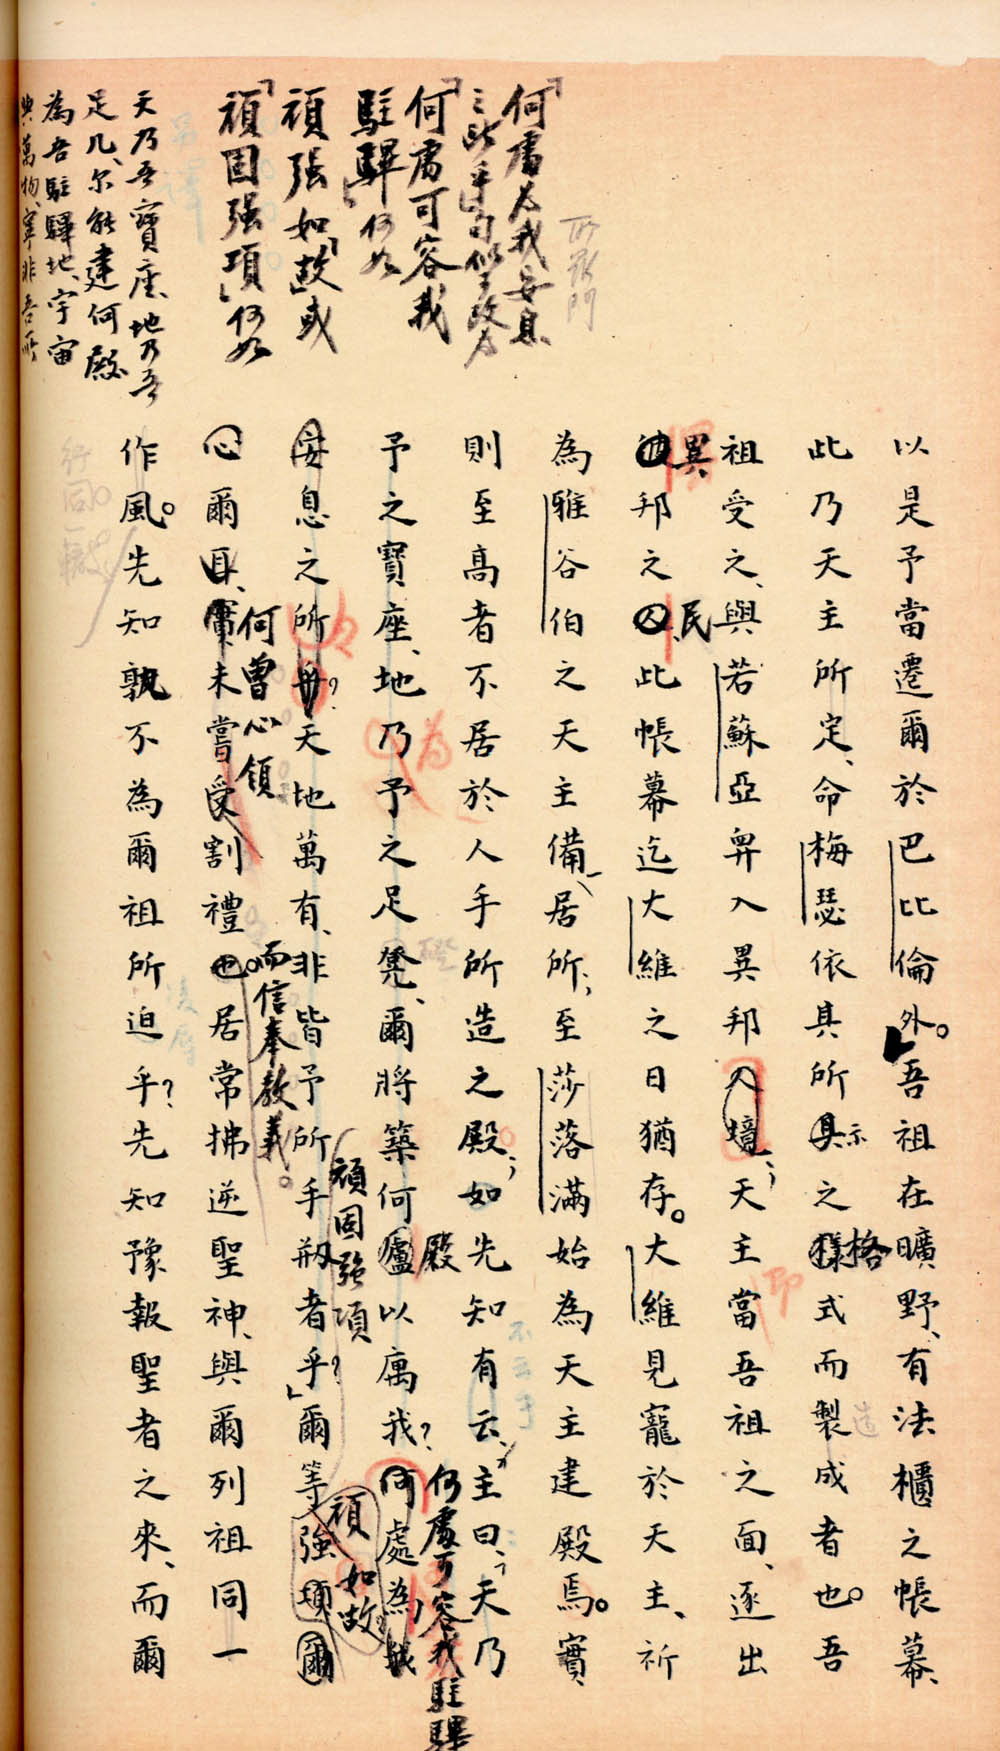 以是予當遷爾於巴比倫外。吾祖在曠野、有法櫃之帳幕、
此乃天主所定、命梅瑟依其所具示之樣格式而製成者也。吾
祖受之、與若蘇亞舁入異邦人境、天主當吾祖之面、逐出
異邦之民、此帳幕迄大維之日猶存。大維見寵於天主、祈
為雅谷伯之天主備居所、至莎落滿始為天主建殿焉。實
則至高者不居於人手所造之殿、如先知有云、主曰、天乃
予之寶座、地乃予之足凳、爾將築何廬殿以寓我？何處為我
何處可容我駐驆
安息之所？天地萬有、非皆予所手剏者乎？」爾等強項爾
頑固強項
頑如故
心爾耳、實未嘗受割禮也。居常拂逆聖神、與爾列祖同一
何曾心領
而信奉教義。
作風。先知孰不為爾祖所迫乎？先知豫報聖者之來、而爾
行同一轍
為
造
即
所
「何處為我安息
之所乎」句似可改為
「何處可容我
駐驆」何如
頑強如「故」或
「頑固强項」何如
另譯
天乃吾寶座、地乃吾
足几、尔能建何殿
為吾駐驆地、宇宙
與萬物、寧非吾所